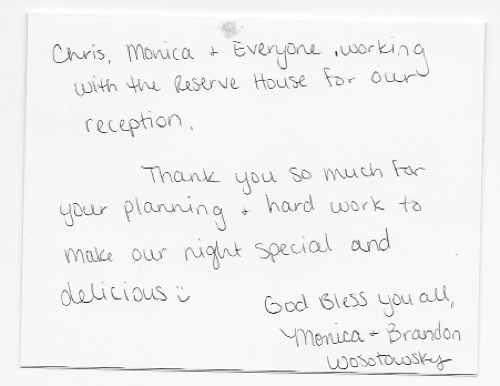 Chris, Monica + Everyone, working
with the Reserve House for our
reception.
Thank you so much for
your planning + hard work to
make our night special and
delicious :)
God Bless you all,
Monica + Brandon
Wosotowsky